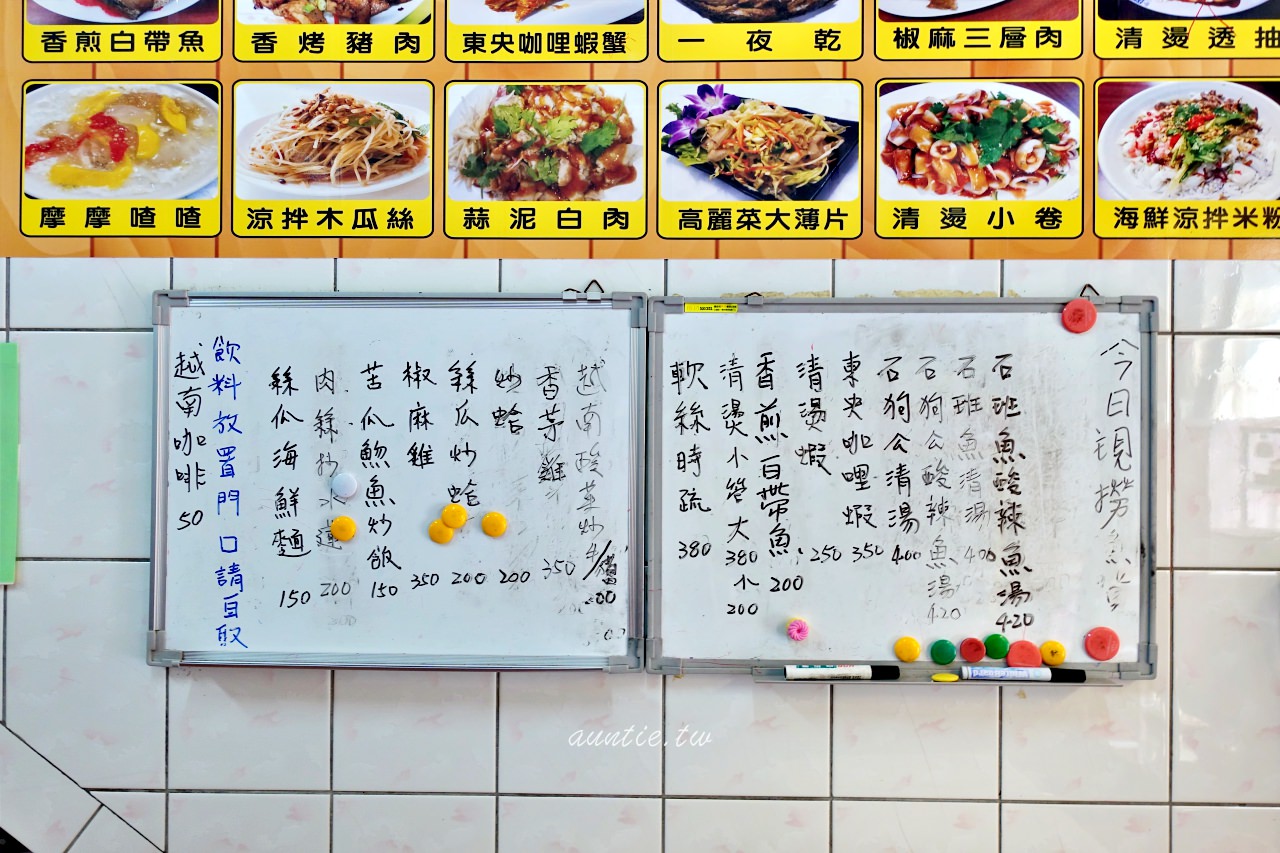 香煎白帶魚
香烤豬肉
東央咖哩蝦蟹
一夜乾
椒麻三層肉
清燙透抽
摩摩喳喳
涼拌木瓜絲
蒜泥白肉
高麗菜大薄片
清燙小卷
海鮮涼拌米粉
今日現撈
石斑魚酸辣魚湯 420
石斑魚清湯 400
石狗公酸辣魚湯 420
石狗公清湯 400
東央咖哩蝦 350
清燙蝦 250
香煎白帶魚 200
清燙小管 大380 小200
軟絲時疏 380
越南酸菜炒
香茅雞 350
炒蛤 200
絲瓜炒蛤 200
椒麻雞 350
苦瓜魩魚炒飯 150
肉絲炒水蓮 200
絲瓜海鮮麵 150
飲料放置門口請自取
越南咖啡 50
auntie.tw